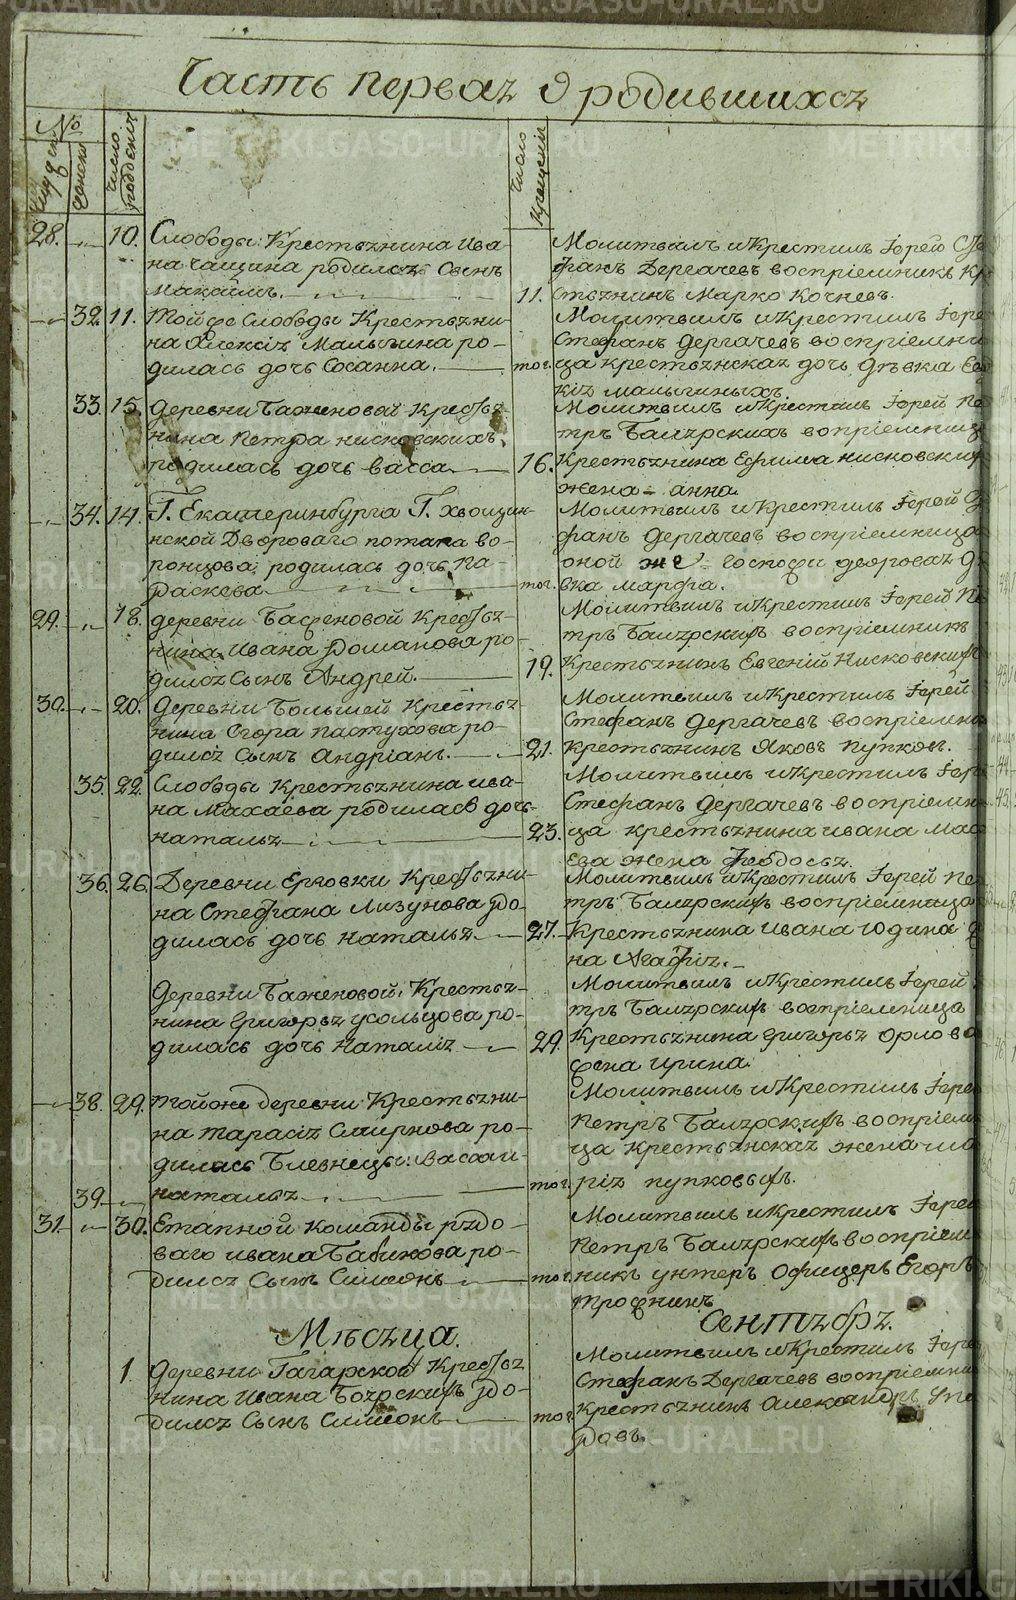 Часть первая о родившихся
№
число рождения
число крещения
28. 10. Слободы Крестьянина Ива-
на Чащина родился Сынъ
Макаимъ.
11.
Молитвилъ и Крестилъ Іерей Сте
фанъ Дергачевъ воспріемникъ Кре
стьянинъ Марко Кочневъ.
32. 11. Той же Слободы Крестьяни-
на Алексія Малыгина ро-
дилась дочь Сосанна.
тог.
Молитвилъ и Крестилъ Іере
Стефанъ Дергачевъ воспріемни
ца крестьянская дочь девка Евд
кія Малыгиныхъ
33. 15. Деревни Баженовой Крестья-
нина Петра Нисковскихъ
родилась дочь Васса
16.
Молитвилъ и Крестилъ Іерей Пе
тръ Балярскихъ вопріемница
Крестьянина Ефима Нисковских
жена Анна
34. 14. Г. Екатеринбурга Г. Хвощин-
нской Дворового Потапа Во-
ронцова родилась дочь Па-
раскева
тог.
Молитвилъ и Крестилъ Іерей С
фанъ Дергачевъ воспріемница
оной же Госпожи дворовая д
вка Марфа.
29. 18. Деревни Баженовой Крестья-
нина Ивана Романова ро-
дился Сынъ Андрей.
19.
Молитвилъ и Крестилъ Іерей Пе
тръ Балярскихъ воспріемникъ
Крестьянинъ Евгеній Нисковскихъ
30. 20. Деревни Большей Крестья
нина Егора Пастухова ро-
дился Сынъ Андріанъ.
21.
Молитвилъ и Крестилъ Іерей
Стефанъ Дергачевъ воспріемни
крестьянинъ Яковъ Пупковъ.
35. 22. Слободы Крестьянина Ива-
на Махаева родилась дочь
Наталья
23.
Молитвилъ и Крестилъ Іере
Стефанъ Дергачевъ воспріемни
ца крестьянина Ивана Мах
ева жена Феодосья.
36. 26. Деревни Ерзовки Крестьяни-
на Стефана Лизунова ро-
дилась дочь Наталья
27.
Молитвилъ и Крестилъ Іерей Пе
тръ Балярскихъ воспріемница
Крестьянина Ивана Юдина ж
на Агафія.
Деревни Баженовой Крестья-
нина Григорья Усольцова ро-
дилась дочь Наталія
29.
Молитвилъ и Крестилъ Іерей
тръ Балярскихъ воспріемница
Крестьянина Григорья Орлова
жена Ирина
38. 29. Той оне деревни Крестьяни-
на Тарасія Смирнова ро-
дилась Близнецы: Васса и
39. Наталья
тог.
Молитвилъ и Крестилъ Іере
Петръ Балярскихъ воспріем
ца Крестьянская жена Ма
рія Пупковыхъ.
31. 30. Етапной Команды рядо-
ваго Ивана Бабикова ро-
дился Сынъ Симеонъ
тог.
Молитвилъ и Крестилъ Іере
Петръ Балярскихъ воспріем
никъ унтеръ Офицеръ Егоръ
Трофникъ
Месяца Сентябрь.
1. Деревни Гагарской Крестья
нина Ивана Боярскихъ ро-
дился Сынъ Симеонъ
тог.
Молитвилъ и Крестилъ Іере
Стефанъ Дергачевъ воспріемни
крестьянинъ Александръ
ровъ